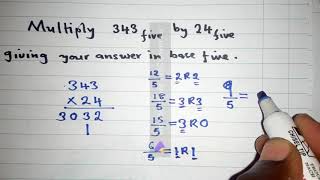 Multiply 343five by 24five
giving your answer in base five.
343
× 24
3032
1
12/5 = 2R2
18/5 = 3R3
15/5 = 3R0
6/5 = 1R1
9/5 =